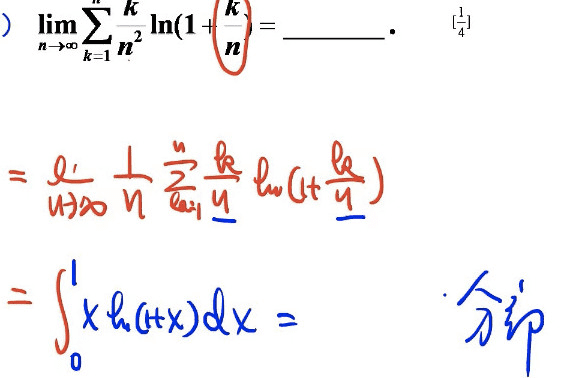 ) lim n→∞ ∑ k=1 n k/n² ln(1+k/n) = ________ . [1/4]
= li n→∞ 1/n ∑ k=1 n k/n ln(1+k/n)
= ∫₀¹ x ln(1+x) dx = 分部